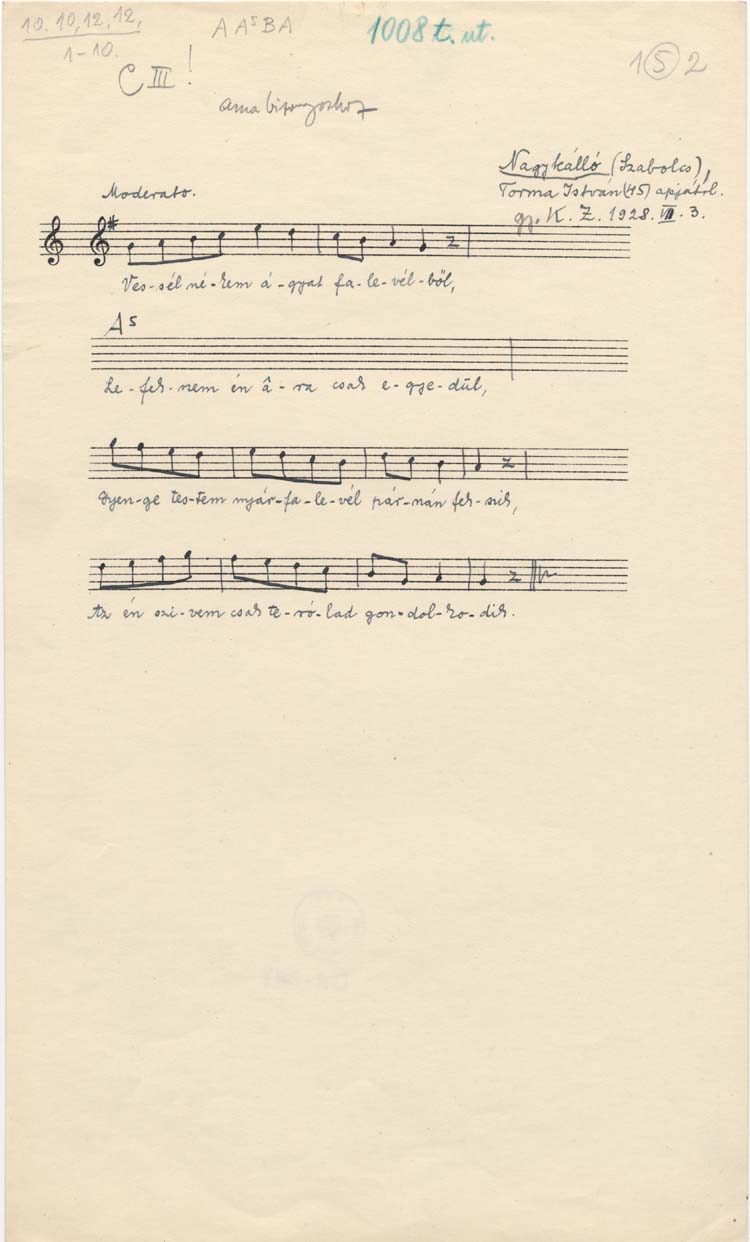 10. 10, 12, 12,
1-10.
A A⁵ B A
1008 t. ut.
1 5 2
C III !
ama
Nagykálló (Szabolcs),
Torma István (45) apjától.
gy. K. Z. 1928. VII. 3.
Moderato.
Ves-sél né-kem á-gyat fa-le-vél-ből,
A⁵
Le-fek-nem én â-ra csak e-gye-dül,
Gyen-ge tes-tem nyár-fa-le-vél pár-nán fek-szik,
Az én szi-vem csak te-ró-lad gon-dol-ko-dik.